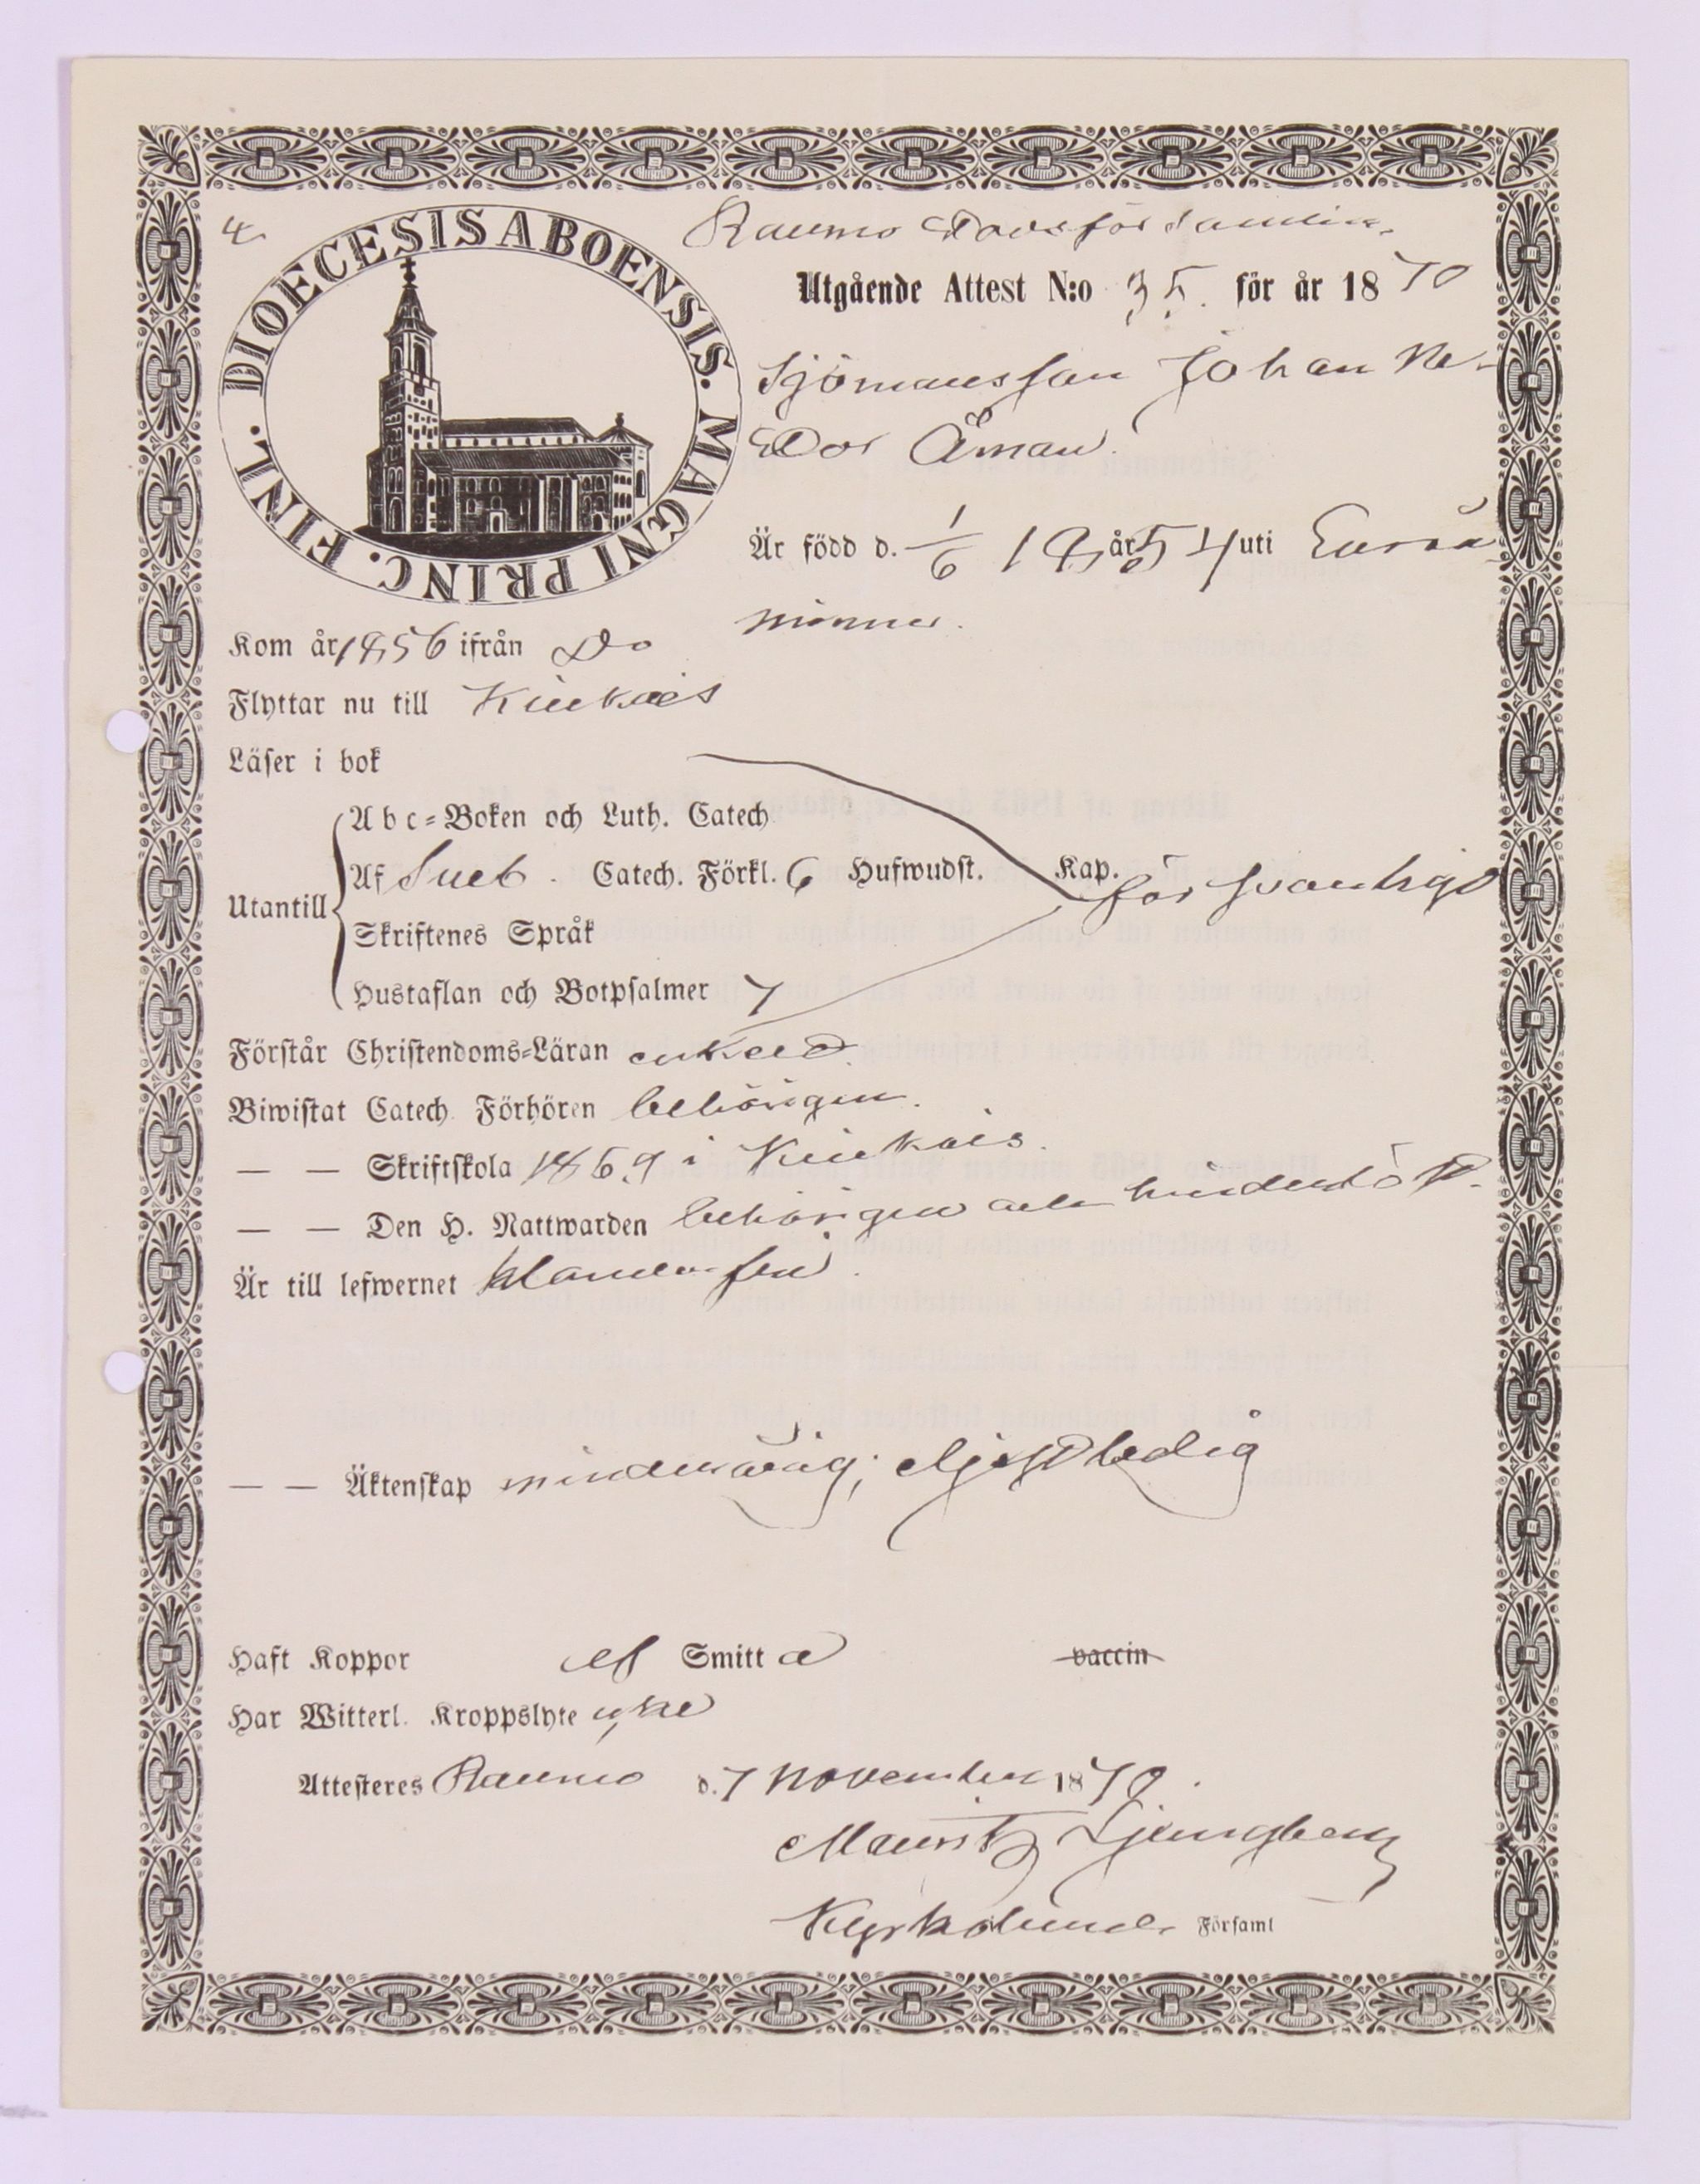 4
DIOECESIS ABOENSIS. MAGNI PRINC. FINL.
Raumo Stadsförsamlin.
Utgående Attest N:o 35. för år 1870
Sjömansson Johan Ne-
Dor Åman.
Är född d. 1/6 år 1854 uti Eura
minne.
Kom år 1856 ifrån Do
Flyttar nu till Kiukais
Läser i bok
Abc-Boken och Luth. Catech
Af Sveb. Catech. Förkl. 6 Hufwudst. Kap. försvarligt
Utantill
Skriftenes Språk
Hustaflan och Botpsalmer 7
Förstår Christendoms-Läran enkelt.
Biwistat Catech. Förhören behörigen.
— — Skriftskola 1869 i Kiukais.
— — Den H. Nattwarden behörigen och hinderlöst.
Är till lefwernet klanderfri.
— — Äktenskap minderårig; oljyst ledig
Haft Koppor af Smitta vaccin
Har Witterl. Kroppslyte icke
Attesteres Raumo d. 7 November 1870.
Mauritz Ljungberg
Kyrkoherde Församl